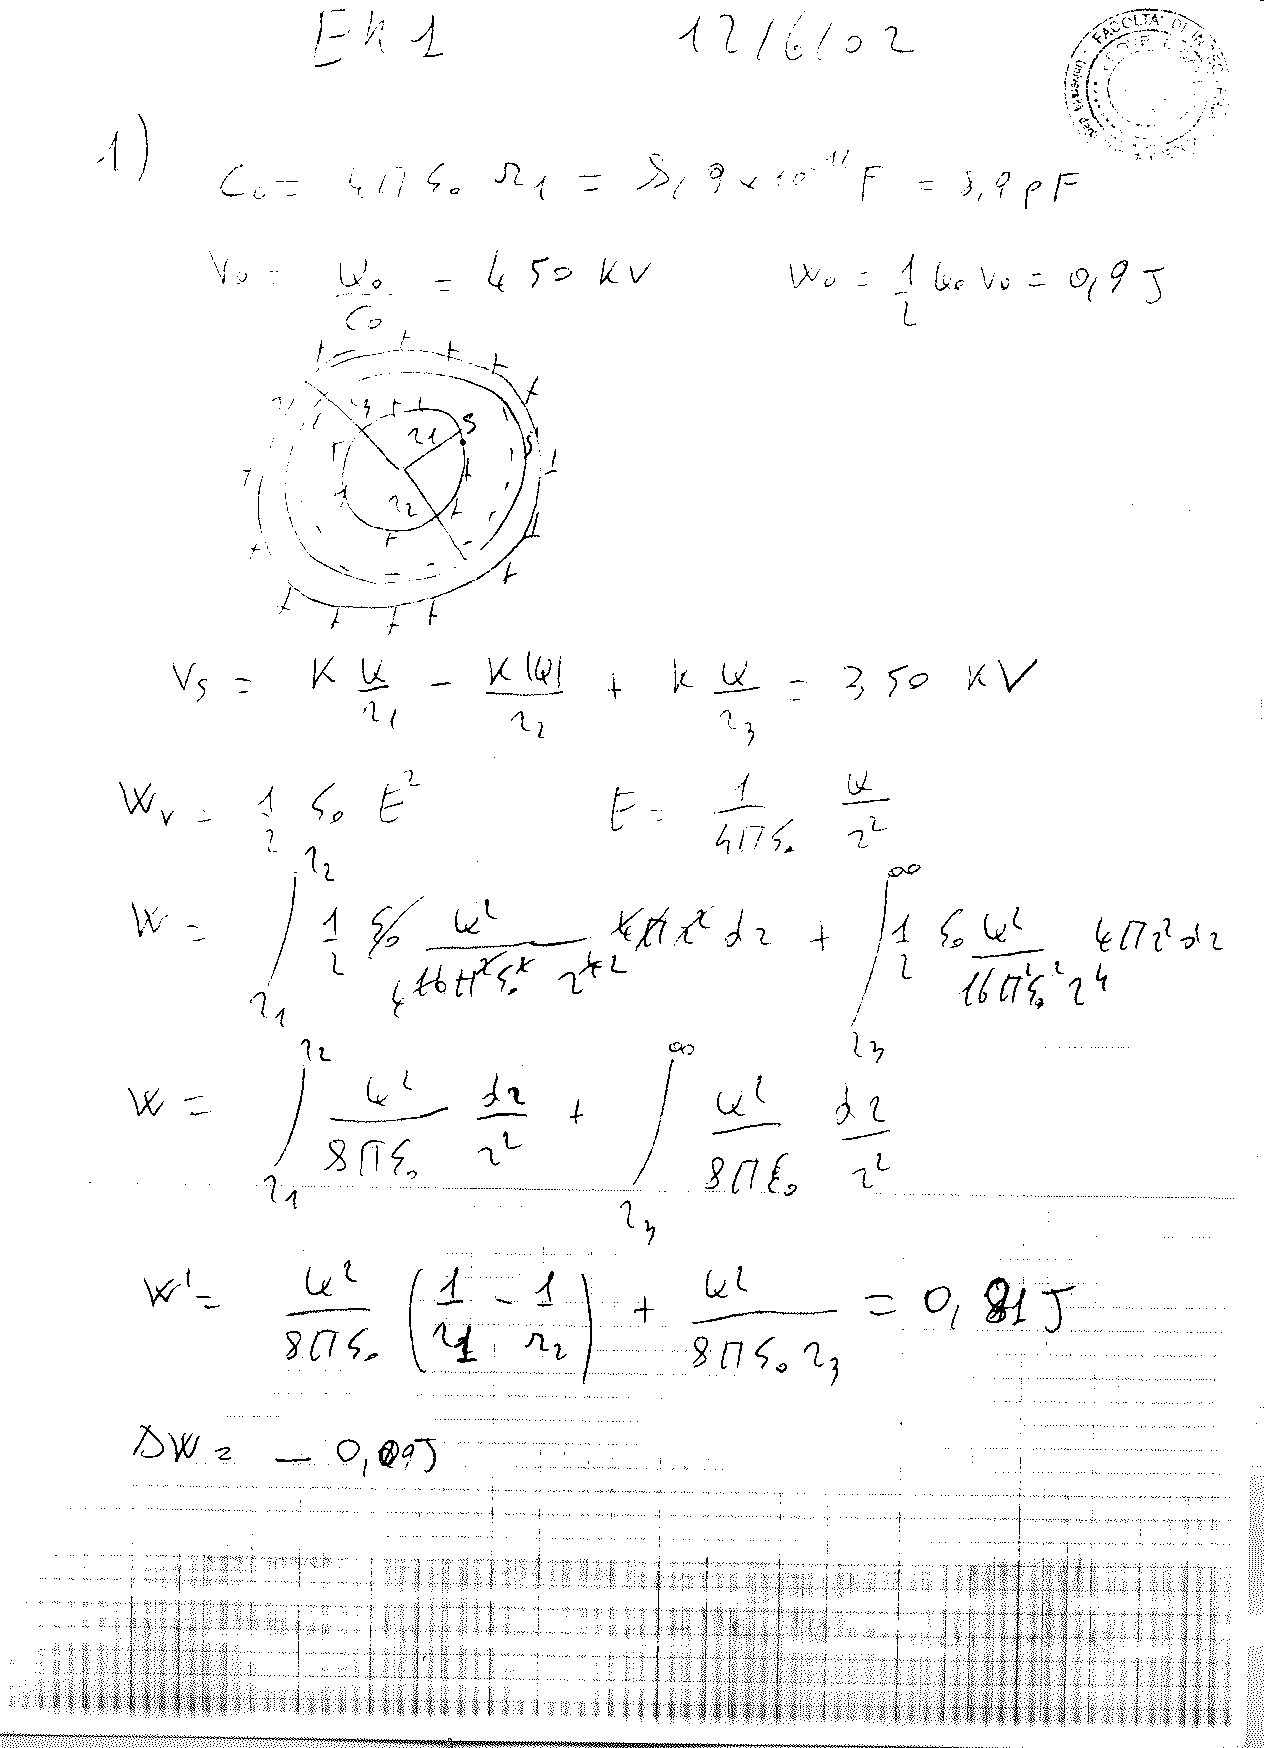 ER 1 12/6/02
FACOLTA' DI INGEG
1)
C₀ = 4π ε₀ r₁ = 8,9 × 10⁻¹² F = 8,9 pF
V₀ = Q₀/C₀ = 450 KV W₀ = 1/2 Q₀ V₀ = 0,9 J
r₁ S
r₂
V_S = K Q/r₁ - K |Q|/r₂ + K Q/r₃ = 350 KV
W_v = 1/2 ε₀ E² E = 1/4πε₀ Q/r²
W = ∫_{r₁}^{r₂} 1/2 ε₀ Q²/16π²ε₀² r⁴ 4π r² dr + ∫_{r₃}^{∞} 1/2 ε₀ Q²/16π²ε₀² r⁴ 4π r² dr
W = ∫_{r₁}^{r₂} Q²/8πε₀ dr/r² + ∫_{r₃}^{∞} Q²/8πε₀ dr/r²
W' = Q²/8πε₀ (1/r₁ - 1/r₂) + Q²/8πε₀ r₃ = 0,81 J
ΔW = - 0,09 J